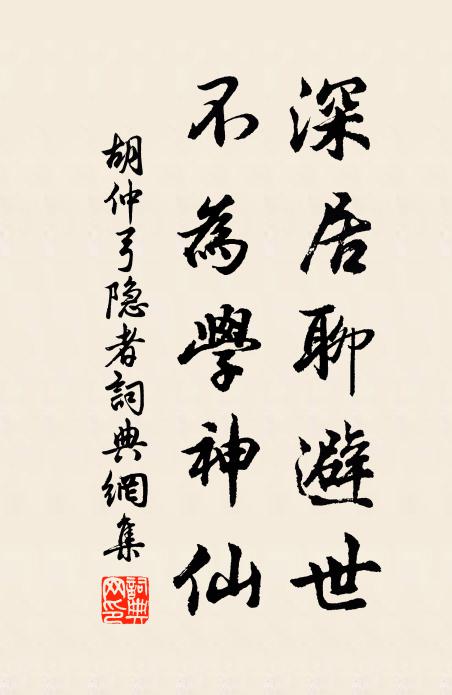 深居聊避世
不為學神仙
胡仲弓隐者詞典網集
詞典網印